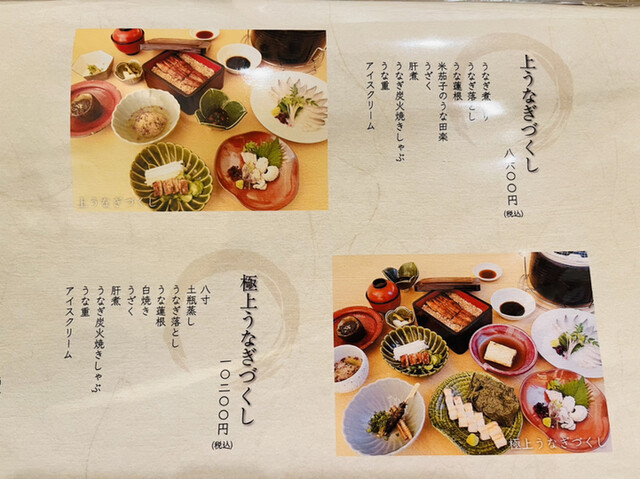 上うなぎづくし
八六〇〇円
(税込)
うなぎ煮
うなぎ落とし
うな蓮根
米茄子のうな田楽
うざく
肝煮
うなぎ炭火焼きしゃぶ
うな重
アイスクリーム
上うなぎづくし
極上うなぎづくし
一〇二〇〇円
(税込)
八寸
土瓶蒸し
うなぎ落とし
うな蓮根
白焼き
うざく
肝煮
うなぎ炭火焼きしゃぶ
うな重
アイスクリーム
極上うなぎづくし